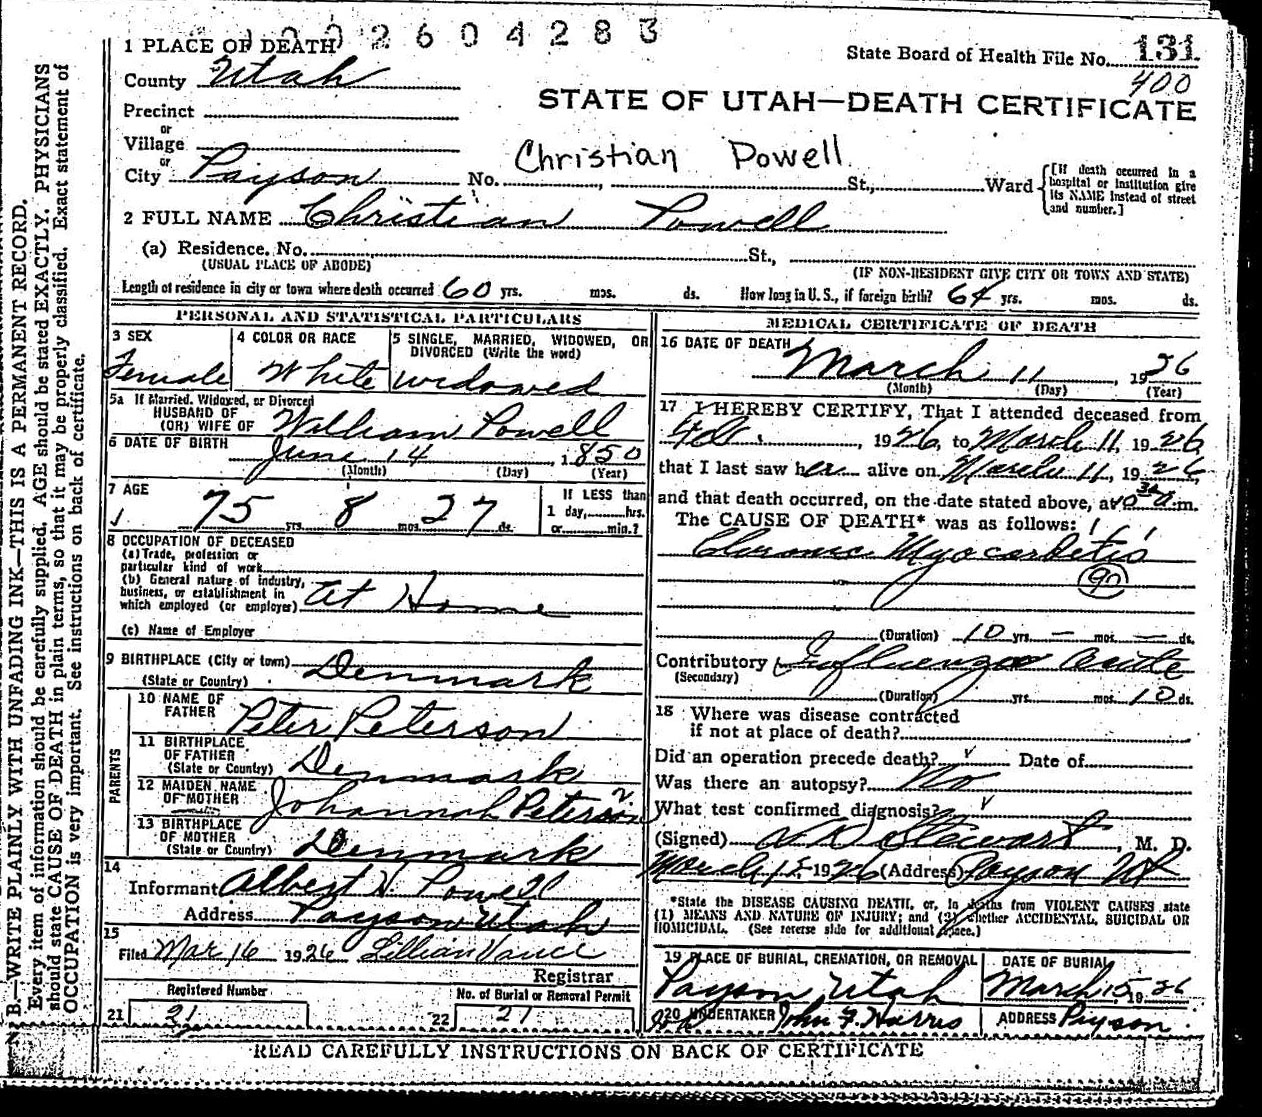 1002604283
1 PLACE OF DEATH
State Board of Health File No. 131
400
County Utah
STATE OF UTAH—DEATH CERTIFICATE
Precinct
or
Village
or
Christian Powell
City Payson No. , St., Ward
[If death occurred in a
hospital or institution give
its NAME instead of street
and number.]
2 FULL NAME Christian Powell
(a) Residence. No. St.,
(USUAL PLACE OF ABODE) (IF NON-RESIDENT GIVE CITY OR TOWN AND STATE)
Length of residence in city or town where death occurred 60 yrs. mos. ds. How long in U. S., if foreign birth? 64 yrs. mos. ds.
PERSONAL AND STATISTICAL PARTICULARS
3 SEX
Female
4 COLOR OR RACE
White
5 SINGLE, MARRIED, WIDOWED, OR
DIVORCED (Write the word)
widowed
5a If Married, Widowed, or Divorced
HUSBAND OF
(OR) WIFE OF William Powell
6 DATE OF BIRTH June 14, 1850
(Month) (Day) (Year)
7 AGE
75 yrs. 8 mos. 27 ds.
If LESS than
1 day, hrs.
or min.?
8 OCCUPATION OF DECEASED
(a) Trade, profession or
particular kind of work
(b) General nature of industry,
business, or establishment in
which employed (or employer) At Home
(c) Name of Employer
9 BIRTHPLACE (City or town) Denmark
(State or Country)
PARENTS
10 NAME OF
FATHER Peter Peterson
11 BIRTHPLACE
OF FATHER
(State or Country) Denmark
12 MAIDEN NAME
OF MOTHER Johannah Peterson
13 BIRTHPLACE
OF MOTHER
(State or Country) Denmark
14
Informant Albert H. Powell
Address Payson Utah
15
Filed Mar 16 1926 Lillian Vance
Registrar
Registered Number
21 21
No. of Burial or Removal Permit
22 21
MEDICAL CERTIFICATE OF DEATH
16 DATE OF DEATH
March 11, 1926
(Month) (Day) (Year)
17 I HEREBY CERTIFY, That I attended deceased from
Feb, 1926, to March 11, 1926,
that I last saw her alive on March 11, 1926,
and that death occurred, on the date stated above, at a.m.
The CAUSE OF DEATH* was as follows:
Chronic Myocarditis
90
(Duration) 10 yrs. — mos. — ds.
Contributory Influenza acute
(Secondary)
(Duration) yrs. mos. 10 ds.
18 Where was disease contracted
if not at place of death?
Did an operation precede death? ✓ Date of
Was there an autopsy? No
What test confirmed diagnosis? ✓
(Signed) Stewart, M. D.
March 15 1926 (Address) Payson Ut
*State the DISEASE CAUSING DEATH, or, in deaths from VIOLENT CAUSES, state
(1) MEANS AND NATURE OF INJURY; and (2) whether ACCIDENTAL, SUICIDAL OR
HOMICIDAL. (See reverse side for additional space.)
19 PLACE OF BURIAL, CREMATION, OR REMOVAL
Payson Utah
DATE OF BURIAL
March 15 1926
20 UNDERTAKER John F. Harris
ADDRESS Payson.
READ CAREFULLY INSTRUCTIONS ON BACK OF CERTIFICATE
N. B.—WRITE PLAINLY WITH UNFADING INK—THIS IS A PERMANENT RECORD.
Every item of information should be carefully supplied. AGE should be stated EXACTLY. PHYSICIANS
should state CAUSE OF DEATH in plain terms, so that it may be properly classified. Exact statement of
OCCUPATION is very important. See instructions on back of certificate.